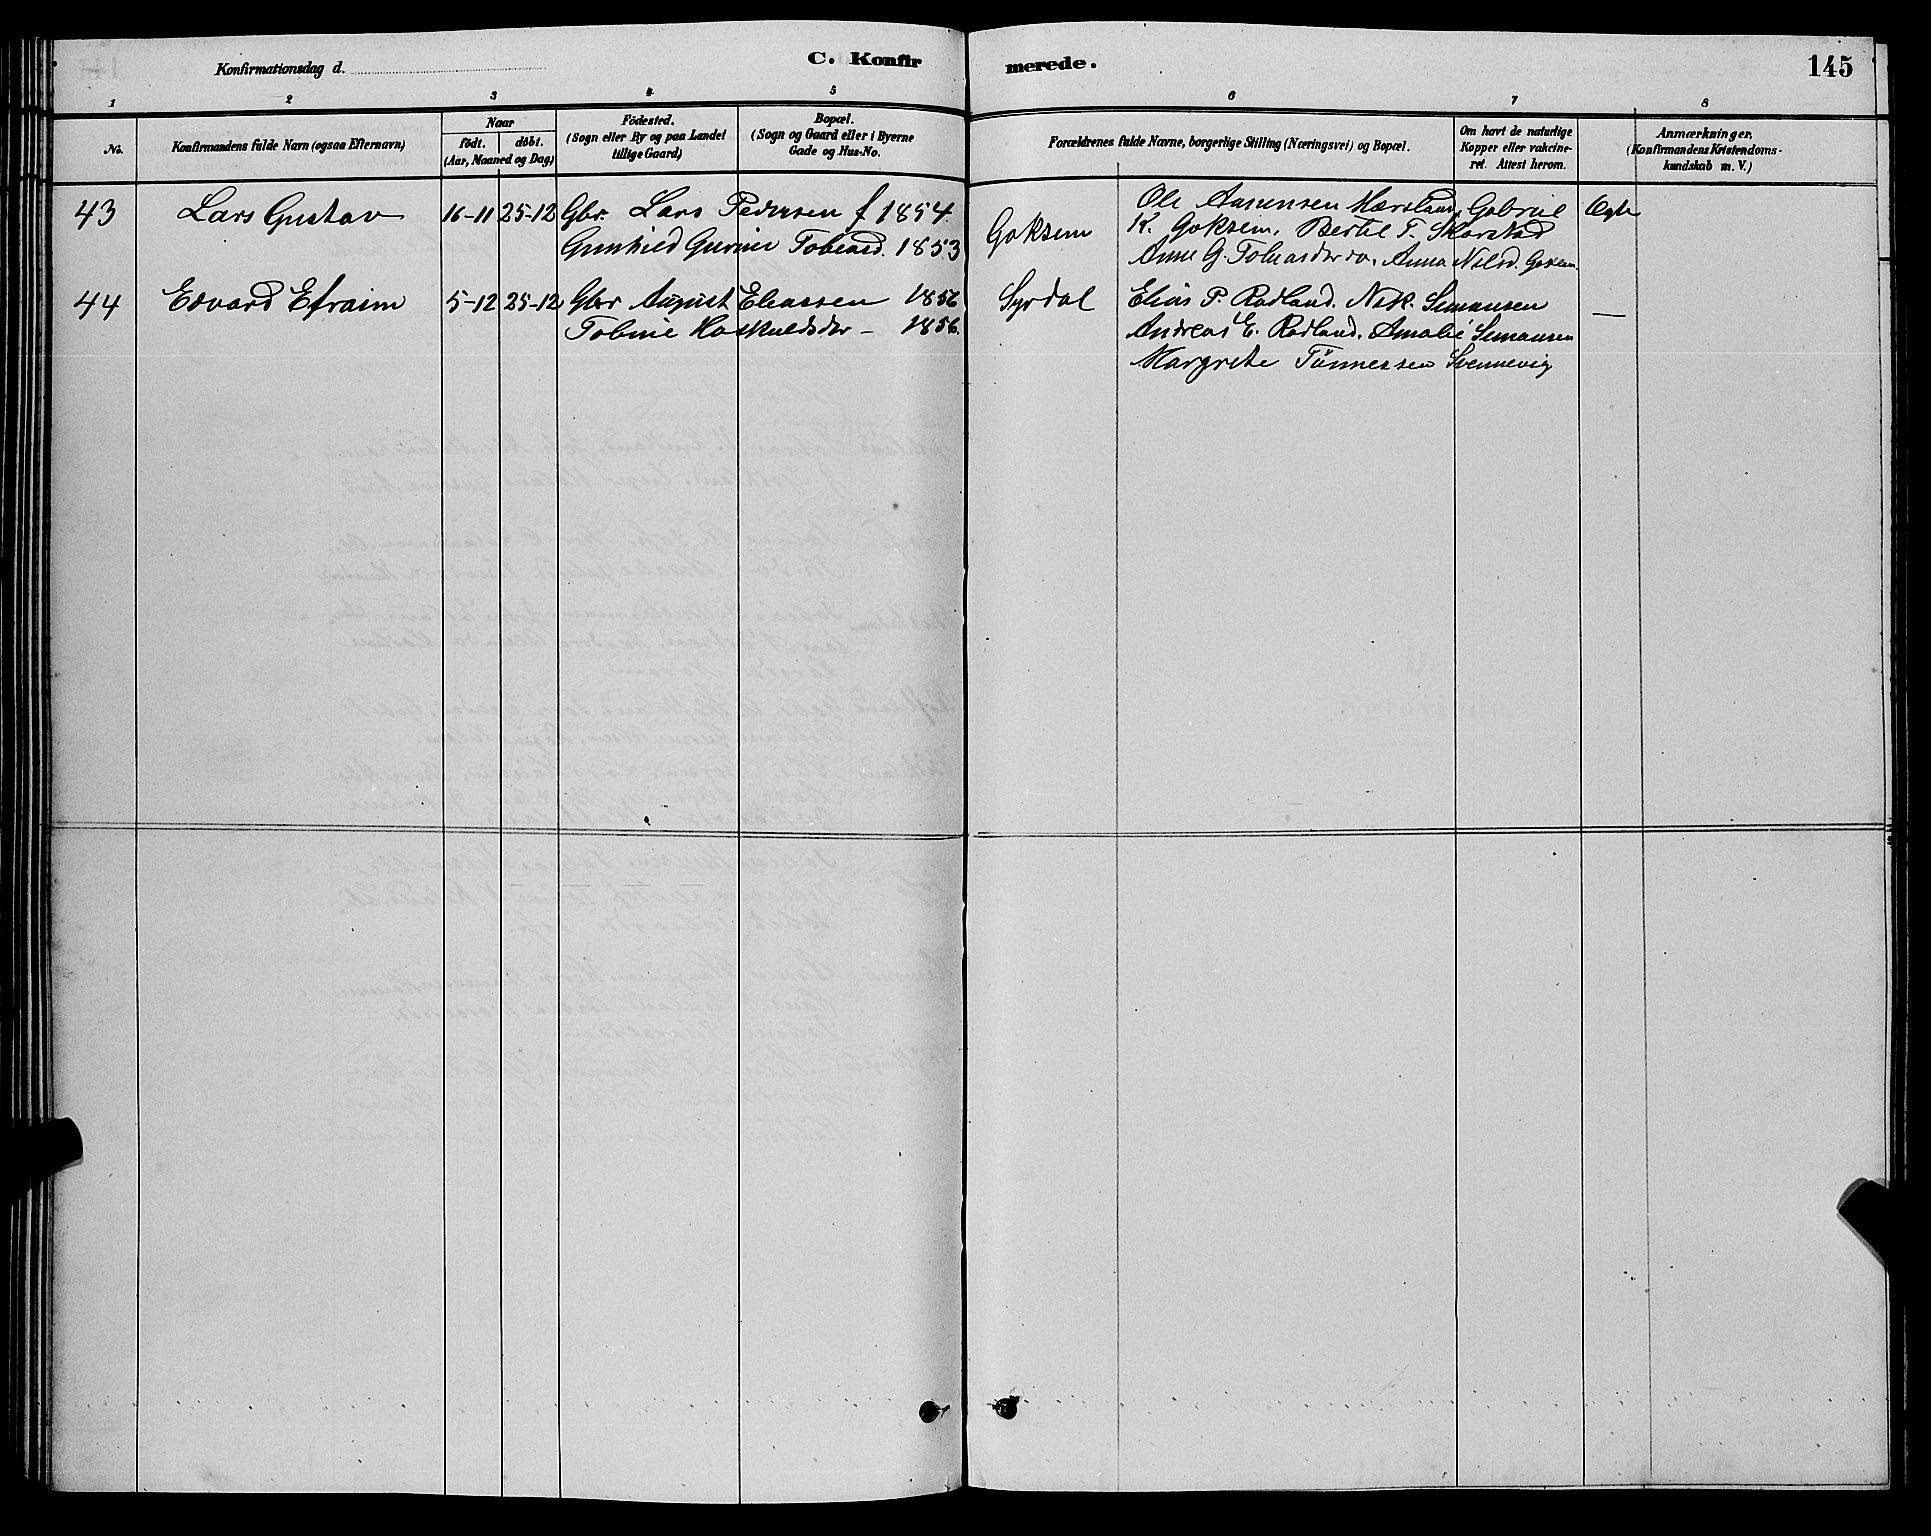 Konfirmationsdag d.
C. Konfirmerede.
145
1 2 3 4 5 6 7 8
No.
Konfirmandens fulde Navn (ogsaa Efternavn)
Naar
födt. döbt.
(Aar, Maaned og Dag)
Födested.
(Sogn eller By og paa Landet
tillige Gaard)
Bopæl.
(Sogn og Gaard eller i Byerne
Gade og Hus-No.
Forældrenes fulde Navne, borgerlige Stilling (Næringsvei) og Bopæl.
Om havt de naturlige
Kopper eller vakcine-
ret. Attest herom.
Anmærkninger.
(Konfirmandens Kristendoms-
kundskab m. V.)
43 Lars Gustav 16-11 25-12 Gbr. Lars Pedersen f 1854.
Gunhild Gurine Tobiasd. 1853
Goksem
Ole Aanensen Mærsland, Gabriel
K. Goksem, Bertel T. Skarstad
Anne G. Tobiasdar do. Anna Nilsd. Goksem.
Ægte
44 Edvard Efraim 5-12 25-12 Gbr August Eliassen 1856
Tobine Haskuldsdar - 1856.
Syrdal
Elias P. Rødland. N. K. Simonsen
Andreas E. Rødland. Amalie Simonsen
Margrete Tönnessen Svennevig
—